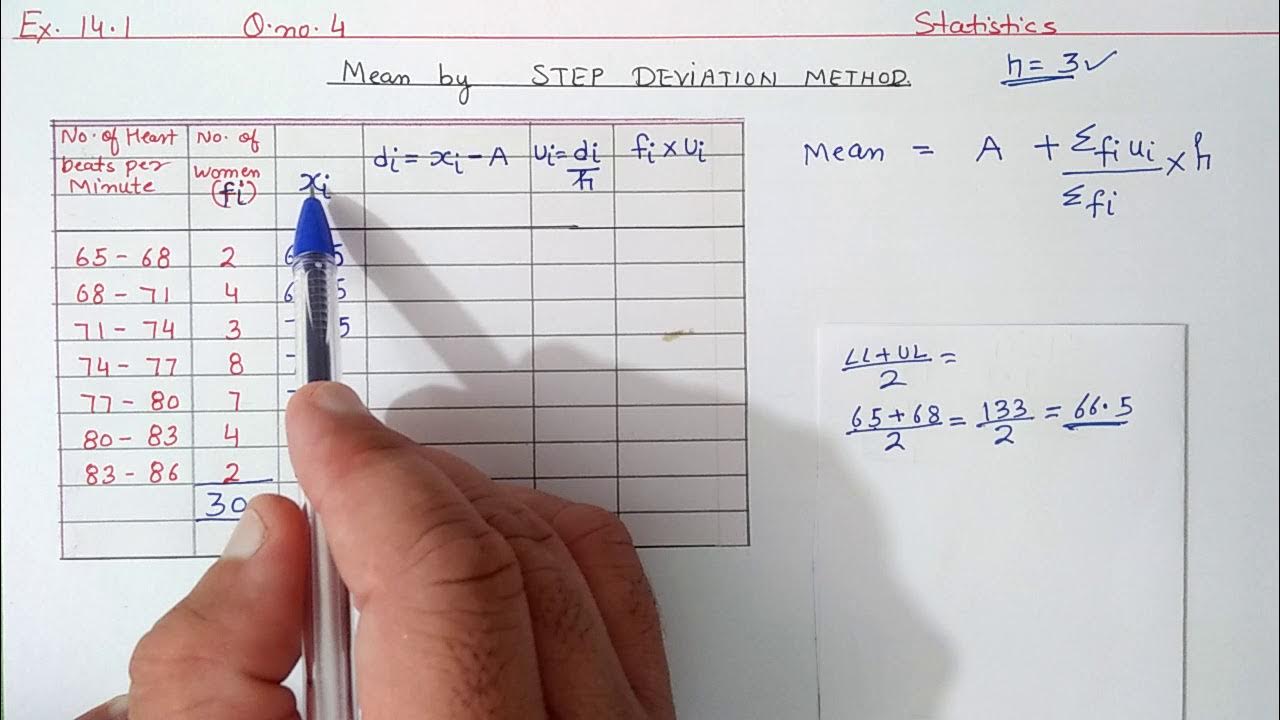 Ex. 14.1 Q.no. 4 Statistics
Mean by STEP DEVIATION METHOD.
h = 3 ✓
No. of Heart beats per Minute
No. of women (fi)
xi
di = xi - A
ui = di/h
fi × ui
65 - 68 2
68 - 71 4
71 - 74 3
74 - 77 8
77 - 80 7
80 - 83 4
83 - 86 2
30
Mean = A + Σfiui/Σfi × h
LL+UL/2 =
65+68/2 = 133/2 = 66.5